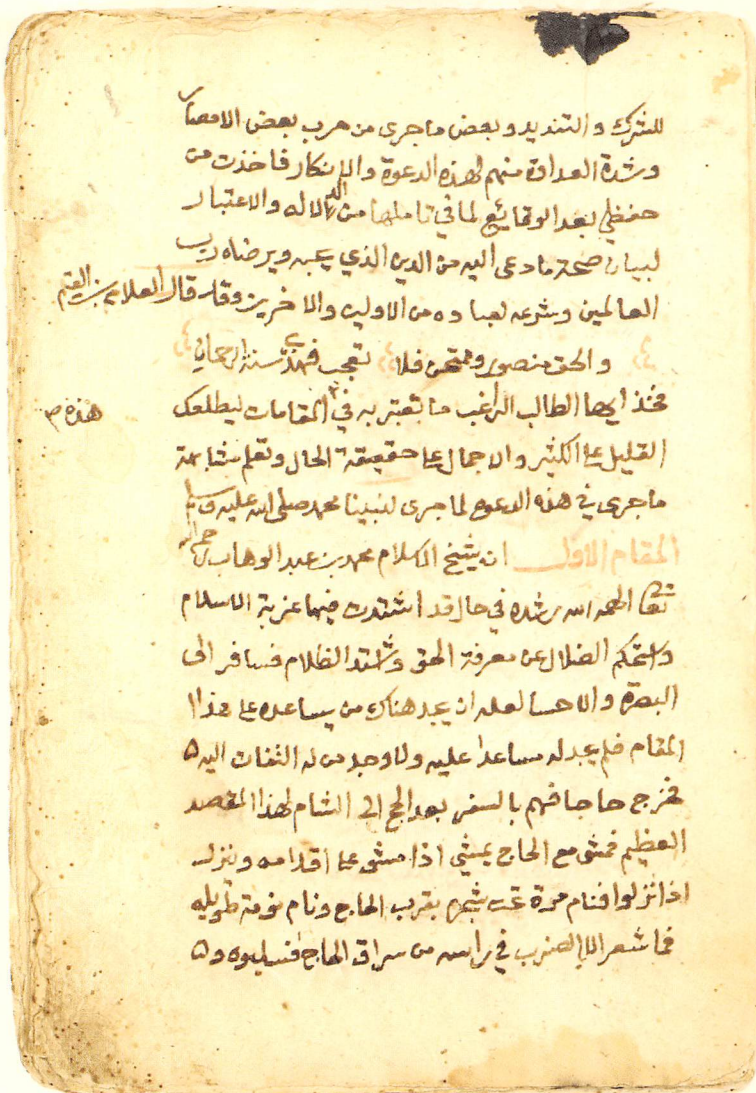 للشرك والتنديد وبعض ما جرى من حرب بعض الامصار
وشدة العداوة منهم لهذه الدعوة والانكار فاخذت من
حفظي بعد الوقائع لما في تاملها من الدلاله والاعتبار
لبيان صحة ما دعى اليه من الدين الذي يحبه ويرضاه رب
العالمين وشرعه لعباده من الاولين والاخرين وقد قال العلامه بن القيم
والحق منصور وممتحن فلا تعجب فهذي سنة الرحمن
فخذ ايها الطالب الراغب ما تعتبر به في المقامات ليطلعك
هذه
القليل على الكثير والاجمال على حقيقة الحال وتعلم مشابهة
ما جرى في هذه الدعوه لما جرى لنبينا محمد صلى الله عليه وسلم
المقام الاول ان شيخ الاسلام محمد بن عبد الوهاب رحمه الله
تعا الهمه الله رشده في حال قد اشتدت فيها غربة الاسلام
واستحكم الضلال عن معرفة الحق واشتد الظلام فسافر الى
البصرة والاحسا لعله ان يجد هناك من يساعده على هذا
المقام فلم يجد له مساعدا عليه ولا وجد من له التفات اليه
فخرج حاجا فهم بالسفر بعد الحج الى الشام لهذا المقصد
العظيم فمشى مع الحاج يمشي اذا مشو على اقدامه وينزل
اذا نزلوا فنام مرة تحت شجره بقرب الحاج ونام نومة طويله
فما شعر الا بالضرب في راسه من سراق الحاج فسلبوه و